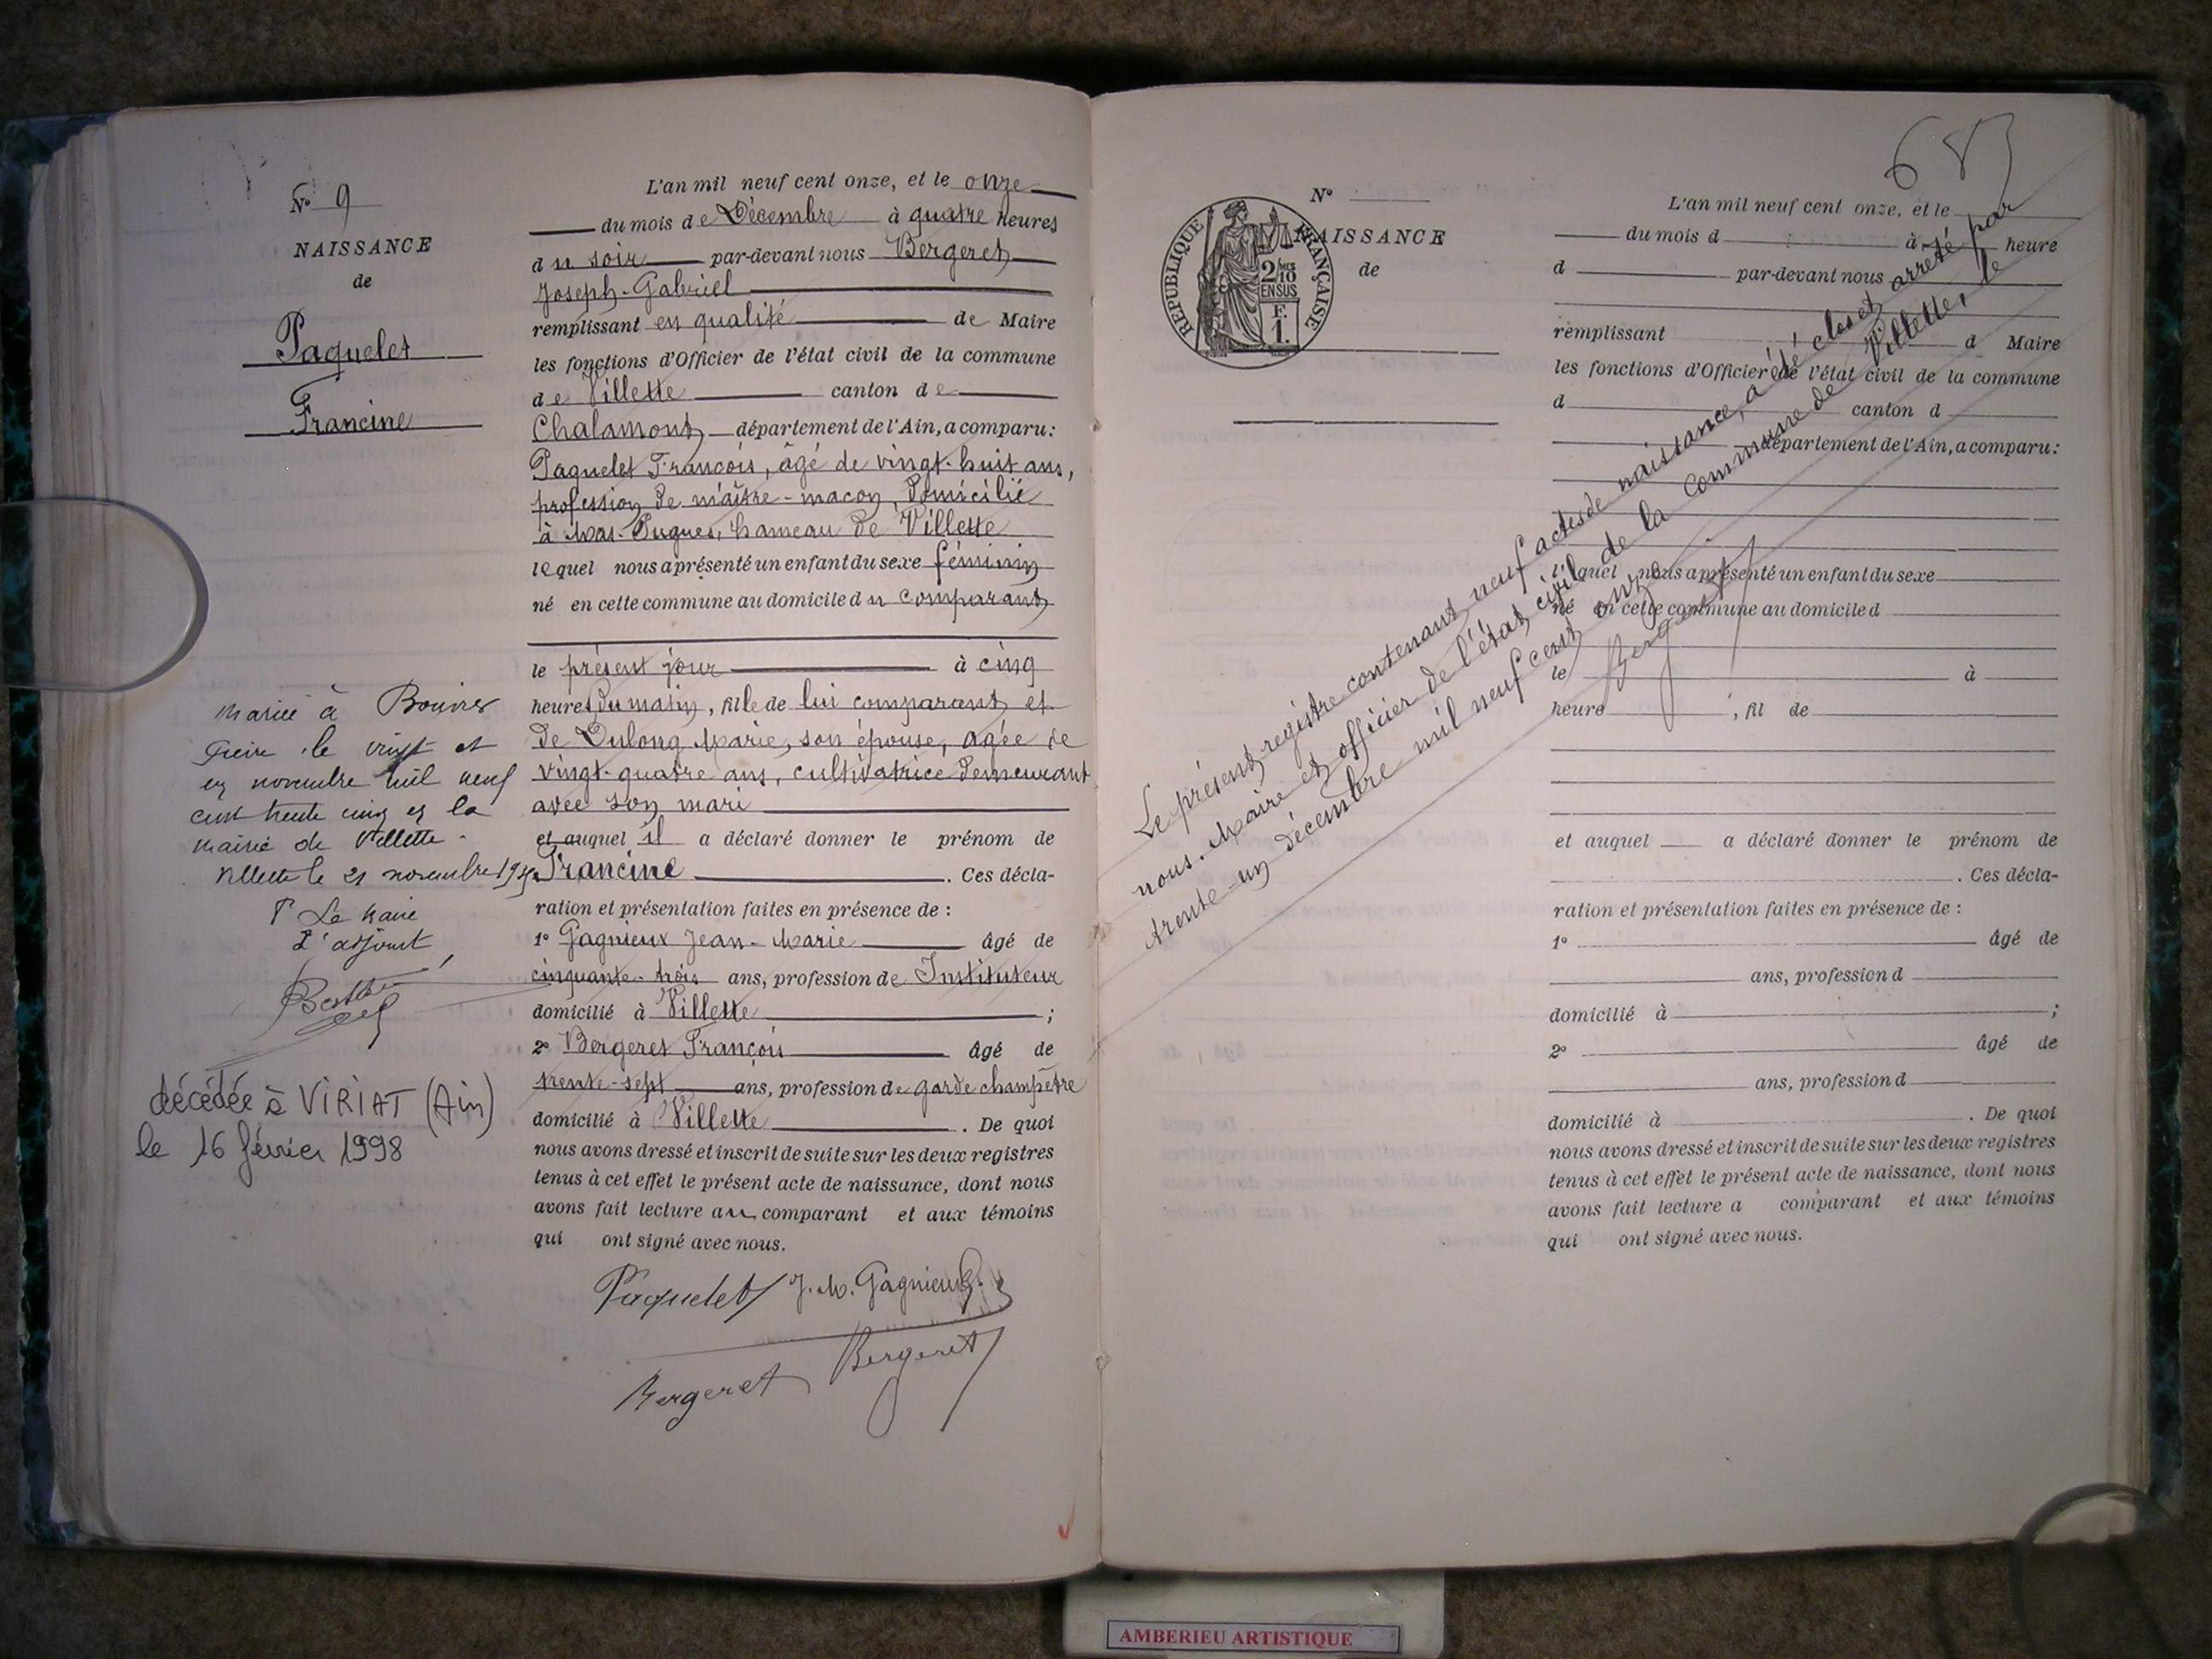 N° 9
NAISSANCE
de
Paquelet
Francine
L'an mil neuf cent onze, et le onze
du mois de Décembre à quatre heures
du soir par-devant nous Bergeret
Joseph-Gabriel
remplissant en qualité de Maire
les fonctions d'Officier de l'état civil de la commune
de Villette canton de
Chalamont département de l'Ain, a comparu:
Paquelet François, âgé de vingt-huit ans,
profession de maître-maçon, domicilié
à Mas-Pugues, hameau de Villette
lequel nous a présenté un enfant du sexe féminin
né en cette commune au domicile du comparant
le présent jour à cinq
heures du matin, fille de lui comparant et
de Dulong Marie, son épouse, agée de
vingt-quatre ans, cultivatrice demeurant
avec son mari
et auquel il a déclaré donner le prénom de
Francine. Ces décla-
ration et présentation faites en présence de :
1° Gagnieux Jean-Marie âgé de
cinquante-trois ans, profession de Instituteur
domicilié à Villette ;
2° Bergeret François âgé de
trente-sept ans, profession de garde champêtre
domicilié à Villette. De quoi
nous avons dressé et inscrit de suite sur les deux registres
tenus à cet effet le présent acte de naissance, dont nous
avons fait lecture au comparant et aux témoins
qui ont signé avec nous.
Paquelet J. M. Gagnieux
Bergeret Bergeret
Mariée à Bouvier
le vingt et
un novembre mil neuf
cent trente cinq en la
mairie de Villette.
Villette le 21 novembre
Pr Le Maire
L'adjoint
décédée à VIRIAT (Ain)
le 16 février 1998
683
RÉPUBLIQUE FRANÇAISE
2/10 MES
EN SUS
F.
1.
N°
NAISSANCE
de
L'an mil neuf cent onze, et le
du mois d à heure
d par-devant nous
remplissant d Maire
les fonctions d'Officier de l'état civil de la commune
d canton d
département de l'Ain, a comparu:
lequel nous a présenté un enfant du sexe
né en cette commune au domicile d
le à
heure , fil de
et auquel a déclaré donner le prénom de
. Ces décla-
ration et présentation faites en présence de :
1° âgé de
ans, profession d
domicilié à ;
2° âgé de
ans, profession d
domicilié à . De quoi
nous avons dressé et inscrit de suite sur les deux registres
tenus à cet effet le présent acte de naissance, dont nous
avons fait lecture a comparant et aux témoins
qui ont signé avec nous.
Le présent registre contenant neuf actes de naissance, a été clos et arrêté par
nous, Maire et officier de l'état civil de la commune de Villette, le
trente-un décembre mil neuf cent onze.
Bergeret
AMBERIEU ARTISTIQUE